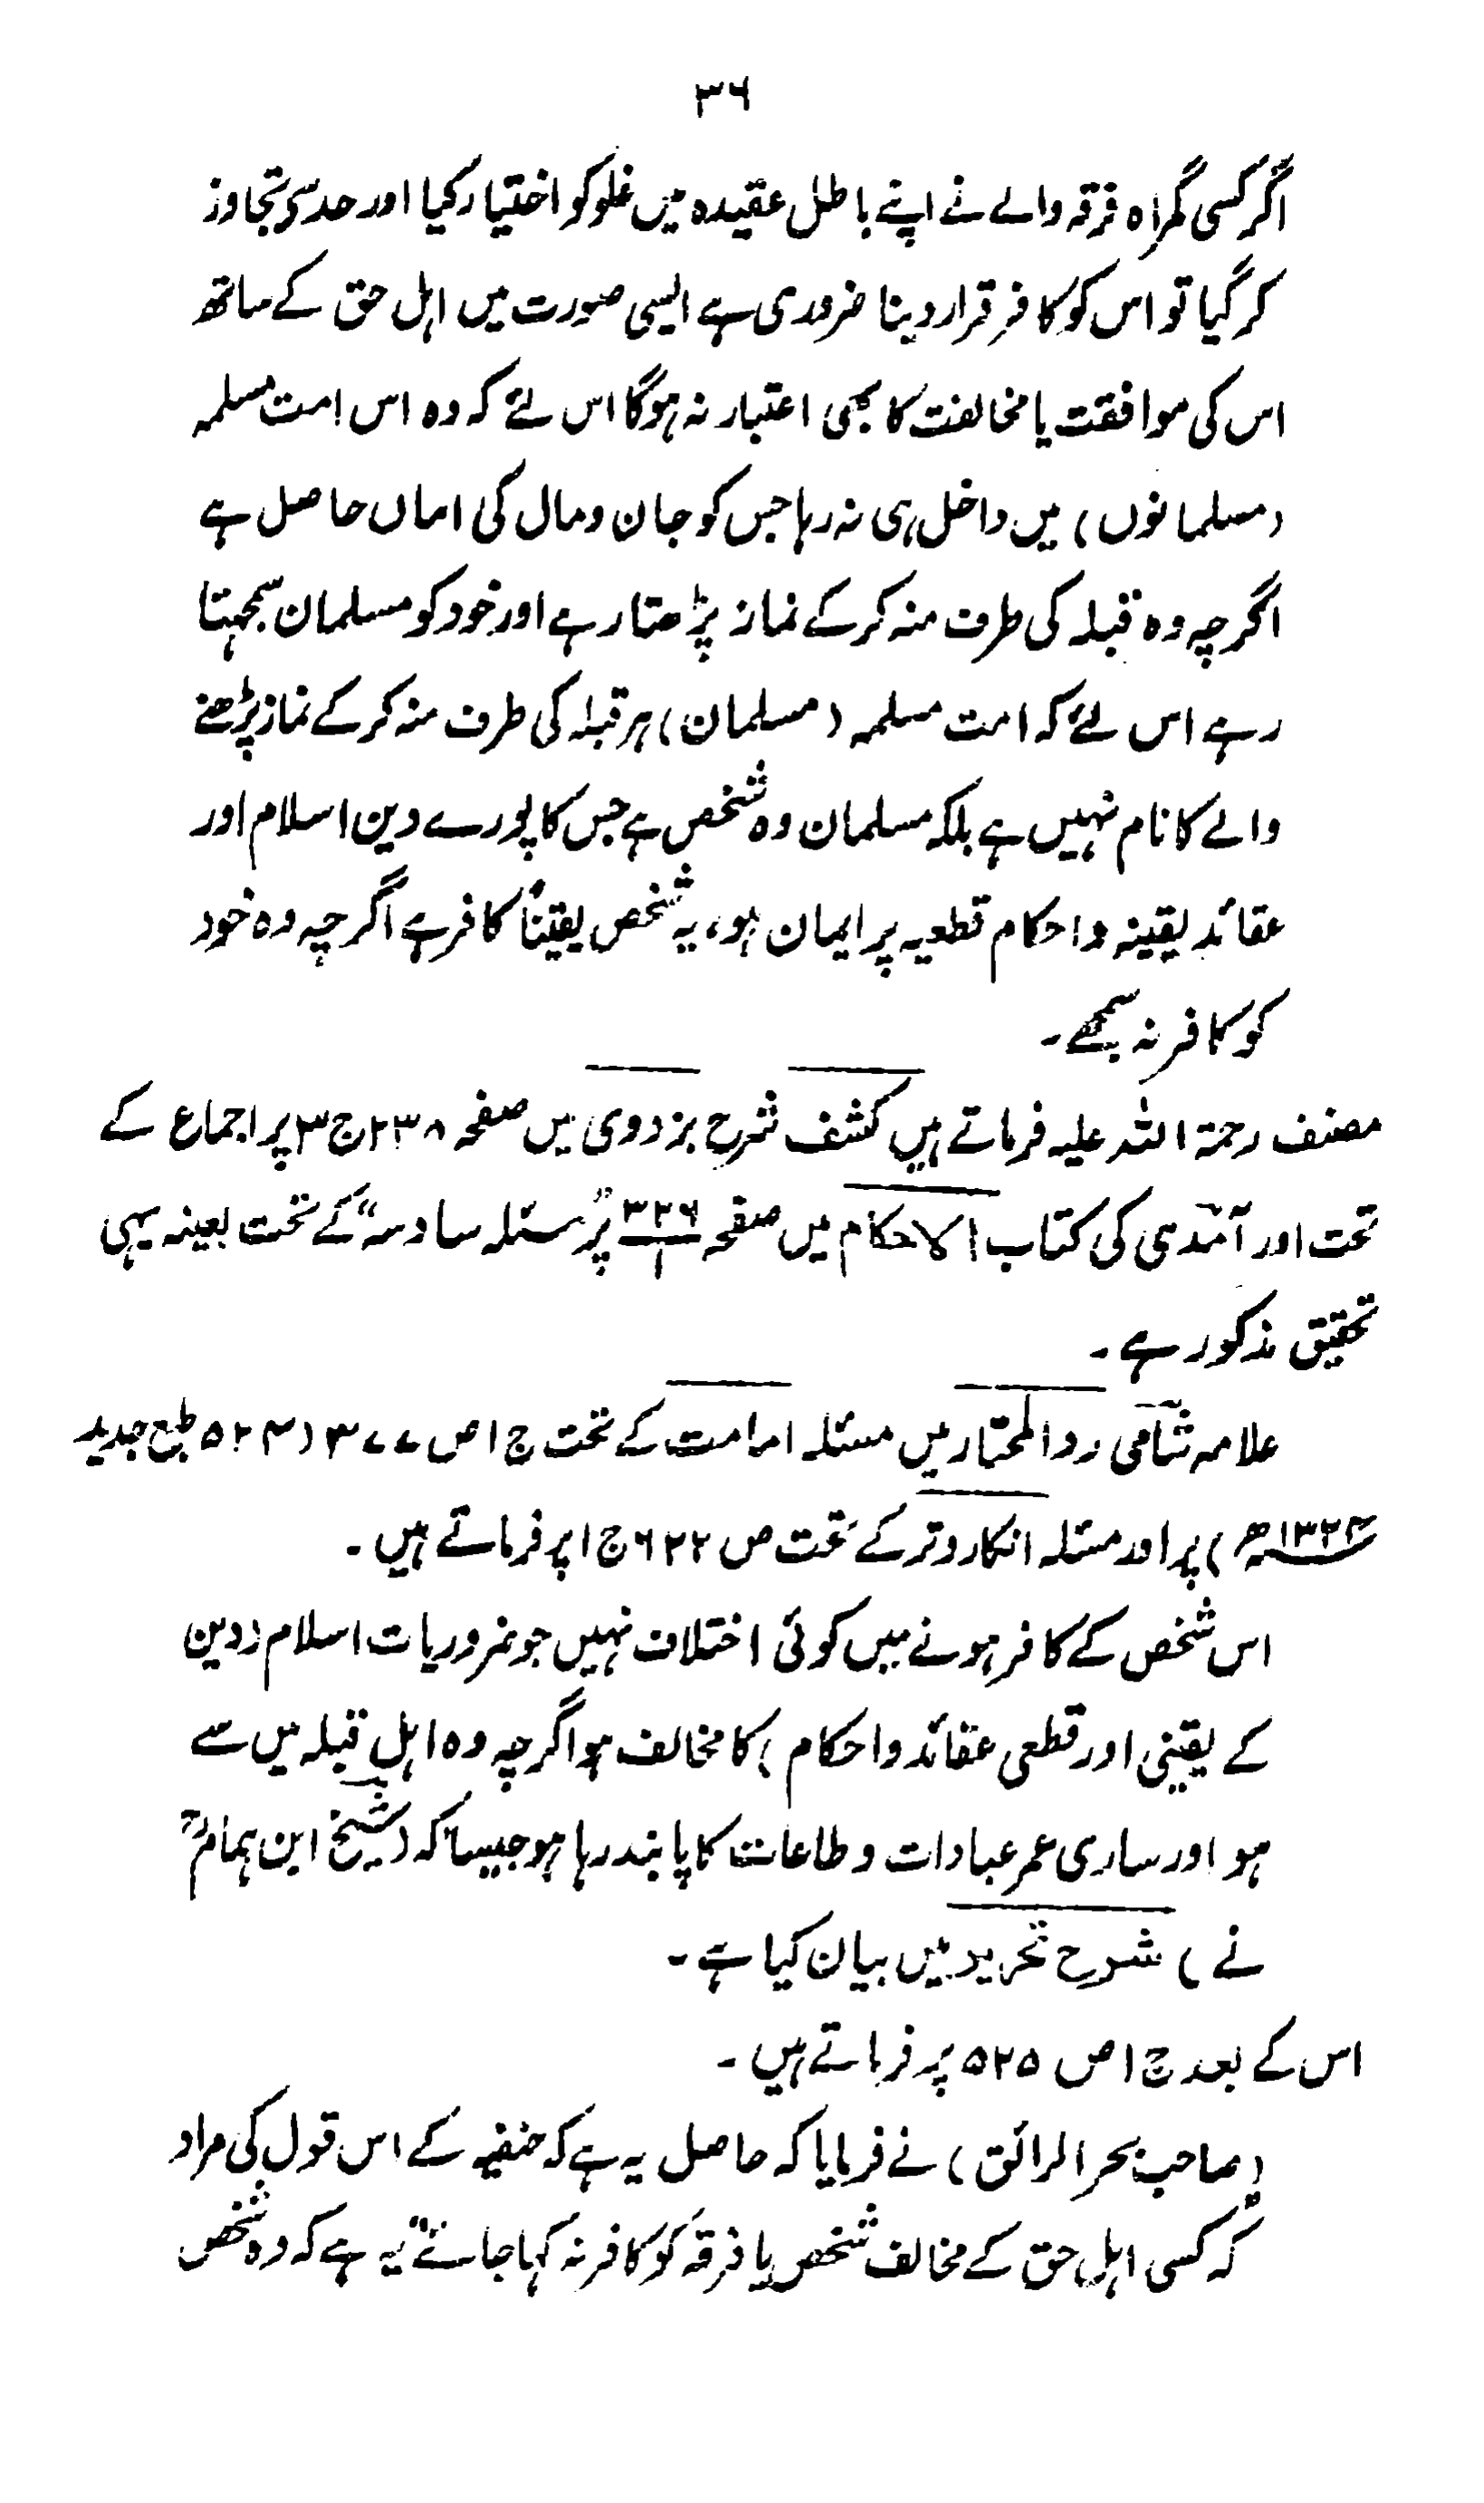 ۳۶
اگر کسی گمراہ فرقہ والے نے اپنے باطل عقیدہ میں غلو کو اختیار کیا اور حد سے تجاوز
کر گیا تو اس کو کافر قرار دینا ضروری ہے ایسی صورت میں اہل حق کے ساتھ
اس کی موافقت یا مخالفت کا بھی اعتبار نہ ہوگا اس لئے کہ وہ اس امت مسلمہ
(مسلمانوں) میں داخل ہی نہ رہا جس کو جان و مال کی اماں حاصل ہے
اگرچہ وہ قبلہ کی طرف منہ کرکے نماز پڑھتا رہے اور خود کو مسلمان سمجھتا
رہے اس لئے کہ امت مسلمہ (مسلمان) ہر قبلہ کی طرف منہ کرکے نماز پڑھنے
والے کا نام نہیں ہے بلکہ مسلمان وہ شخص ہے جس کا پورے دین اسلام اور
عقائد یقینہ و احکام قطعیہ پر ایمان ہو، یہ شخص یقیناً کافر ہے اگرچہ وہ خود
کو کافر نہ سمجھے۔
مصنف رحمۃ اللہ علیہ فرماتے ہیں کشف شرح بزدوی میں صفحہ ۲۳۸ ج ۳ پر اجماع کے
تحت اور آمدی کی کتاب الاحکام میں صفحہ ۳۲۶ پر "مسئلہ سادسہ" کے تحت بعینہ یہی
تحقیق مذکور ہے۔
علامہ شامی ردالمحتار میں مسئلہ امامت کے تحت ج ۱ ص ۳۷۷ (۵۲۴ طبع جدید
۱۳۲۴ھ) پر اور مسئلہ انکار وتر کے تحت ص ۶۲۲ ج ۱ پر فرماتے ہیں۔
اس شخص کے کافر ہونے میں کوئی اختلاف نہیں جو ضروریات اسلام (دین
کے یقینی اور قطعی عقائد و احکام) کا مخالف ہو اگرچہ وہ اہل قبلہ میں سے
ہو اور ساری عمر عبادات و طاعات کا پابند رہا ہو جیسا کہ (شیخ ابن ہمامؒ
نے) شرح تحریر میں بیان کیا ہے۔
اس کے بعد ج ۱ ص ۵۲۵ پر فرماتے ہیں۔
(صاحب بحر الرائق) نے فرمایا کہ حاصل یہ ہے کہ حنفیہ کے اس قول کی مراد
"کہ کسی اہل حق کے مخالف شخص یا فرقہ کو کافر نہ کہا جائے" یہ ہے کہ وہ شخص